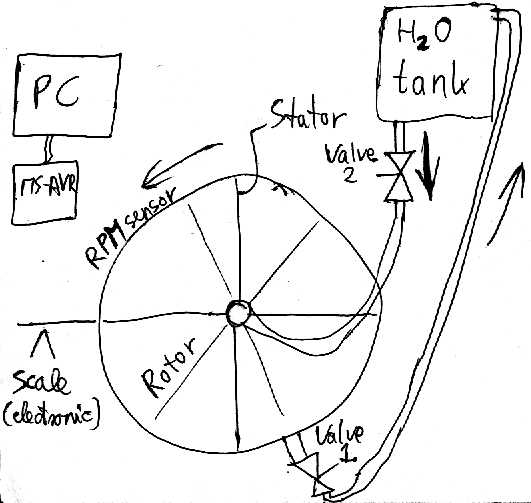 H₂O
tank
PC
Stator
Valve
2
MS-AVR
RPM sensor
Rotor
Scale
(electronic)
Valve
1